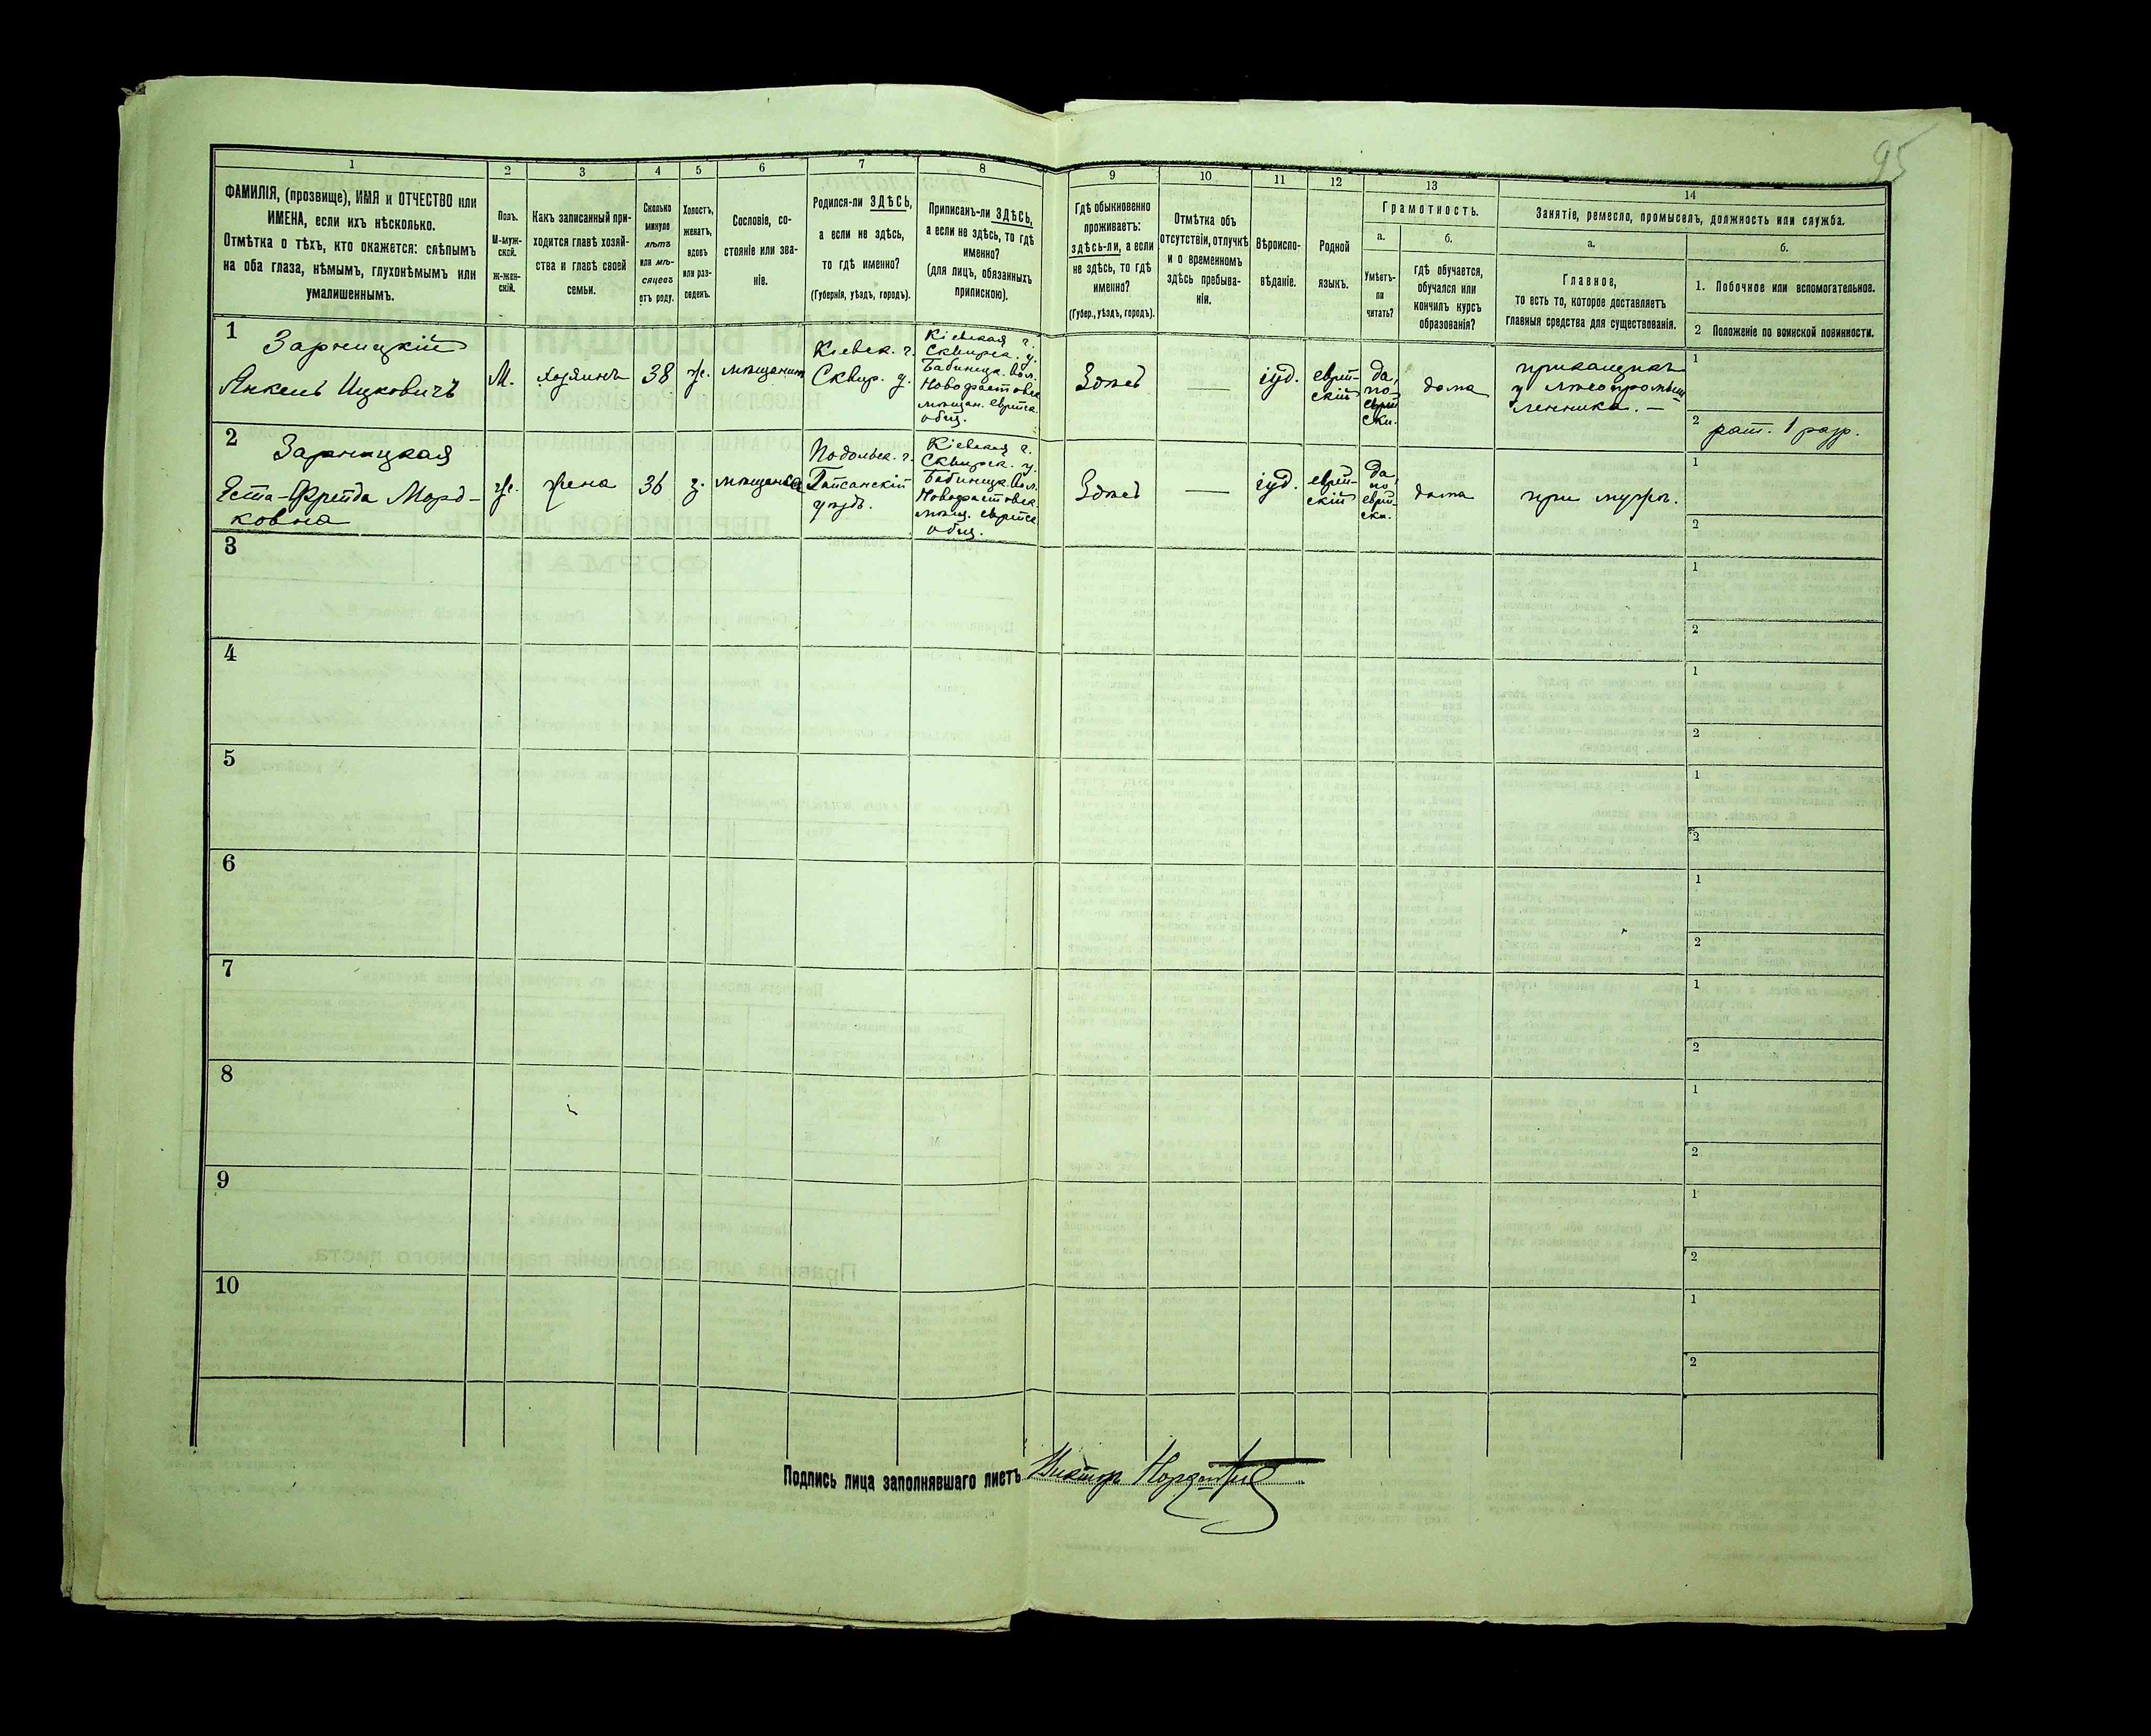 95
1
ФАМИЛІЯ, (прозвище), ИМЯ и ОТЧЕСТВО или
ИМЕНА, если ихъ нѣсколько.
Отмѣтка о тѣхъ, кто окажется: слѣпымъ
на оба глаза, нѣмымъ, глухонѣмымъ или
умалишеннымъ.
2
Полъ.
М-муж-
ской.
Ж-жен-
скій.
3
Какъ записанный при-
ходится главѣ хозяй-
ства и главѣ своей
семьи.
4
Сколько
минуло
лѣтъ
или мѣ-
сяцевъ
отъ роду.
5
Холостъ,
женатъ,
вдовъ
или раз-
веденъ.
6
Сословіе, со-
стояніе или зва-
ніе.
7
Родился-ли ЗДѢСЬ,
а если не здѣсь,
то гдѣ именно?
(Губернія, уѣздъ, городъ).
8
Приписанъ-ли ЗДѢСЬ,
а если не здѣсь, то гдѣ
именно?
(для лицъ, обязанныхъ
припискою).
9
Гдѣ обыкновенно
проживаетъ:
здѣсь-ли, а если
не здѣсь, то гдѣ
именно?
(Губер., уѣздъ, городъ).
10
Отмѣтка объ
отсутствіи, отлучкѣ
и о временномъ
здѣсь пребыва-
ніи.
11
Вѣроиспо-
вѣданіе.
12
Родной
языкъ.
13
Грамотность.
а.
Умѣетъ-
ли
читать?
б.
гдѣ обучается,
обучался или
кончилъ курсъ
образованія?
14
Занятіе, ремесло, промыселъ, должность или служба.
а.
Главное,
то есть то, которое доставляетъ
главныя средства для существованія.
б.
1. Побочное или вспомогательное.
2 Положеніе по воинской повинности.
1
Зарницкій
Янкель Ицковичъ
М.
хозяинъ
38
ж.
мѣщанинъ
Кіевск. г.
Сквир. у.
Кіевская г.
Сквирск. у.
Бабинцк. вол.
Новофастовск.
мѣщан. еврейск.
общ.
Здѣсь
—
іуд.
еврей-
скій
да,
по-
еврей
ски.
дома
прикащикъ
у лѣсопромыш
ленника. —
1
2 рат. 1 разр.
2
Зарницкая
Еста-Фрейда Морд-
ковна
ж.
жена
36
з.
мѣщанка
Подольск. г.
Гайсанскій
уѣздъ.
Кіевская г.
Сквирск. у.
Бабинцк. вол.
Новофастовск.
мѣщ. еврейск.
общ.
Здѣсь
—
іуд.
еврей-
скій
Да,
по
еврей-
ски.
дома
при мужѣ.
1
2
3
1
2
4
1
2
5
1
2
6
1
2
7
1
2
8
1
2
9
1
2
10
1
2
Подпись лица заполнявшаго листъ Викторъ